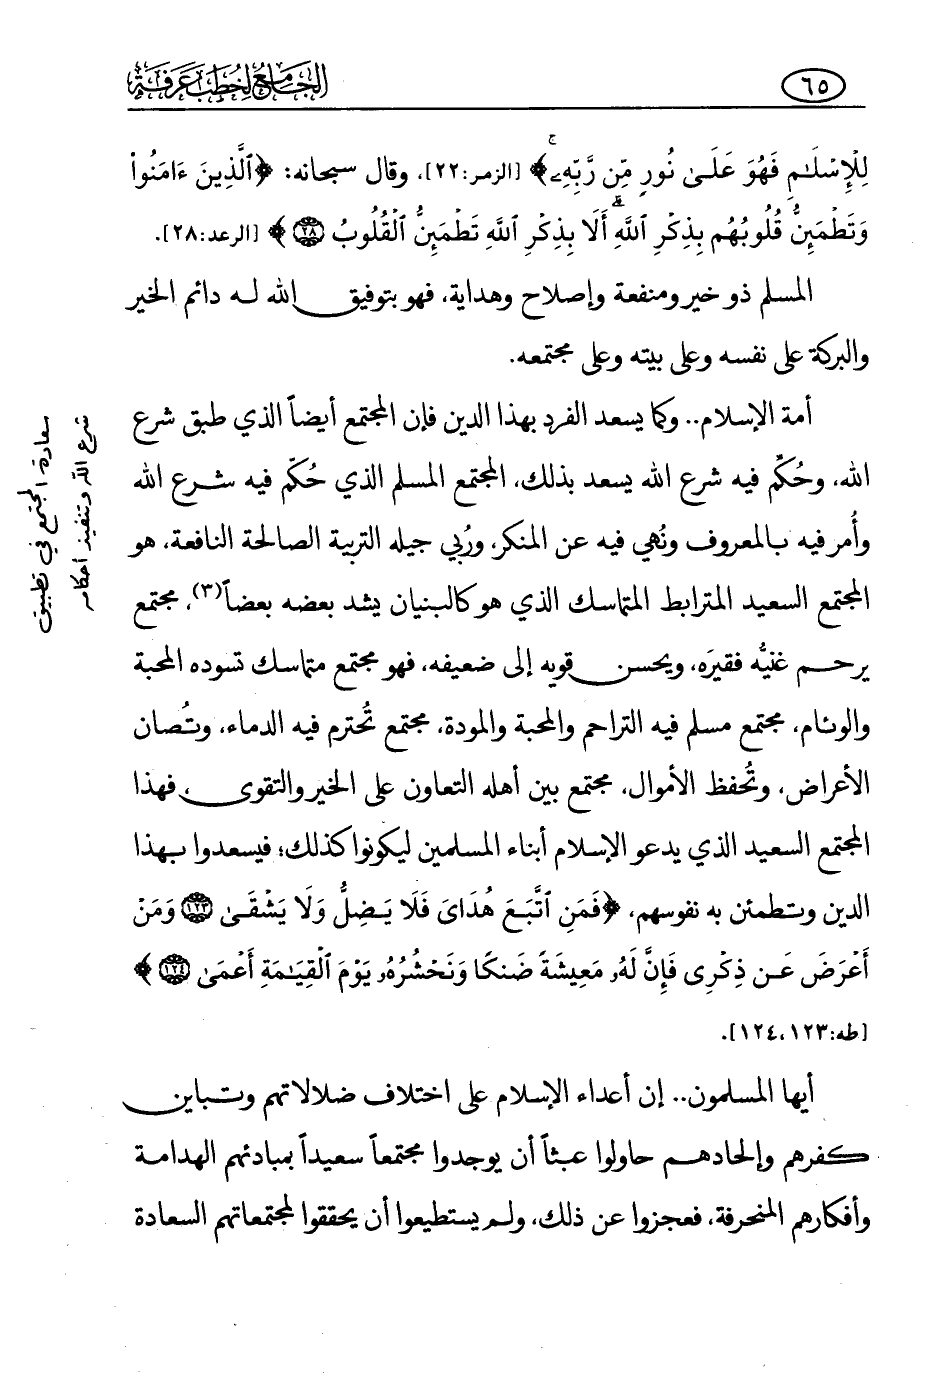 ٦٥
الجامع لخطب عرفة
لِلْإِسْلَٰمِ فَهُوَ عَلَىٰ نُورٍ مِّن رَّبِّهِۦۚ ﴾ [الزمر:٢٢]، وقال سبحانه: ﴿ ٱلَّذِينَ ءَامَنُوا۟
وَتَطْمَئِنُّ قُلُوبُهُم بِذِكْرِ ٱللَّهِۗ أَلَا بِذِكْرِ ٱللَّهِ تَطْمَئِنُّ ٱلْقُلُوبُ ٢٨ ﴾ [الرعد:٢٨].
المسلم ذو خير ومنفعة وإصلاح وهداية، فهو بتوفيق الله له دائم الخير
والبركة على نفسه وعلى بيته وعلى مجتمعه.
أمة الإسلام.. وكما يسعد الفرد بهذا الدين فإن المجتمع أيضاً الذي طبق شرع
الله، وحُكِّم فيه شرع الله يسعد بذلك، المجتمع المسلم الذي حُكِّم فيه شرع الله
وأُمر فيه بالمعروف ونُهي فيه عن المنكر، ورُبي جيله التربية الصالحة النافعة، هو
المجتمع السعيد المترابط المتماسك الذي هو كالبنيان يشد بعضه بعضاً(٣)، مجتمع
يرحم غنيُّه فقيرَه، ويحسن قويه إلى ضعيفه، فهو مجتمع متماسك تسوده المحبة
والوئام، مجتمع مسلم فيه التراحم والمحبة والمودة، مجتمع تُحترم فيه الدماء، وتُصان
الأعراض، وتُحفظ الأموال، مجتمع بين أهله التعاون على الخير والتقوى، فهذا
المجتمع السعيد الذي يدعو الإسلام أبناء المسلمين ليكونوا كذلك؛ فيسعدوا بهذا
الدين وتطمئن به نفوسهم، ﴿ فَمَنِ ٱتَّبَعَ هُدَاىَ فَلَا يَضِلُّ وَلَا يَشْقَىٰ ١٢٣ وَمَنْ
أَعْرَضَ عَن ذِكْرِى فَإِنَّ لَهُۥ مَعِيشَةً ضَنكًا وَنَحْشُرُهُۥ يَوْمَ ٱلْقِيَٰمَةِ أَعْمَىٰ ١٢٤ ﴾
[طه:١٢٣، ١٢٤].
أيها المسلمون.. إن أعداء الإسلام على اختلاف ضلالاتهم وتباين
كفرهم وإلحادهم حاولوا عبثاً أن يوجدوا مجتمعاً سعيداً بمبادئهم الهدامة
وأفكارهم المنحرفة، فعجزوا عن ذلك، ولم يستطيعوا أن يحققوا لمجتمعاتهم السعادة
سعادة المجتمع في تطبيق
شرع الله وتنفيذ أحكامه